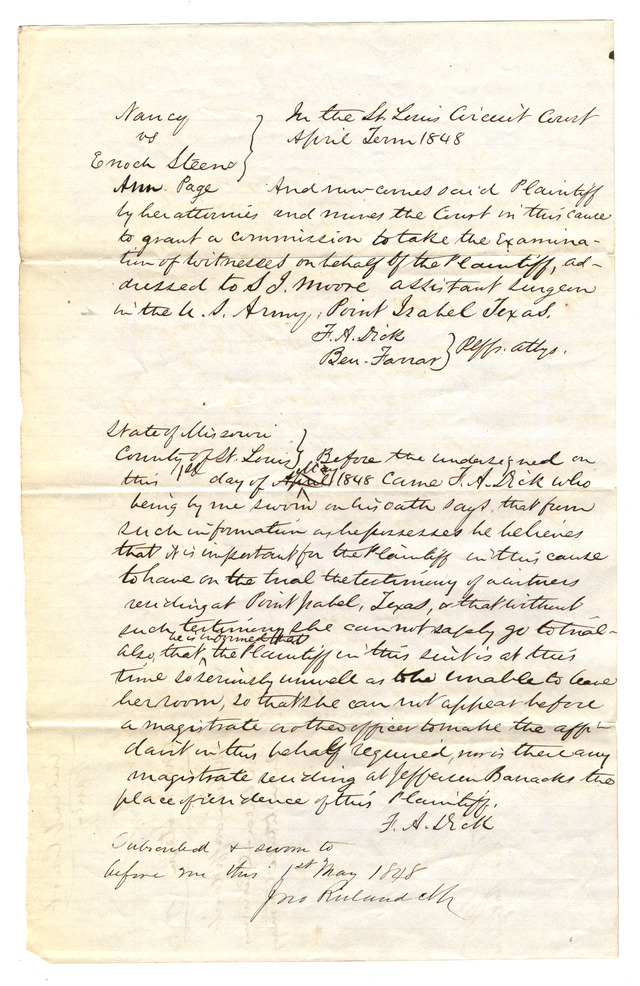 Nancy } In the St Louis Circuit Court
vs } April Term 1848
Enoch Steene }
Ann Page And now comes said Plaintiff
by her attornies and moves the Court in this cause
to grant a commission to take the Examina-
tion of witnesses on behalf of the Plaintiff, ad-
dressed to S J. Moore assistant surgeon
in the U. S. Army, Point Isabel Texas.
F. A. Dick }
Ben. Farrar } Plffs. attys.
State of Missouri }
County of St. Louis } Before the undersigned on
this 1st day of April May 1848 came F. A. Dick who
being by me sworn on his oath says, that from
such information as he possesses he believes
that it is important for the Plaintiff in this cause
to have on the trial the testimony of a witness
residing at Point Isabel, Texas, & that without
such testimony she can not safely go to trial -
he is informed that
also, that the Plaintiff in this suit is at this
time so seriously unwell as to be unable to leave
her room, so that she can not appear before
a magistrate or other officer to make the affi-
davit in this behalf required, nor is there any
magistrate residing at Jefferson Barracks the
place of residence of this Plaintiff.
F. A. Dick
Subscribed & sworn to
before me this 1st May 1848
Jno Ruland Clk